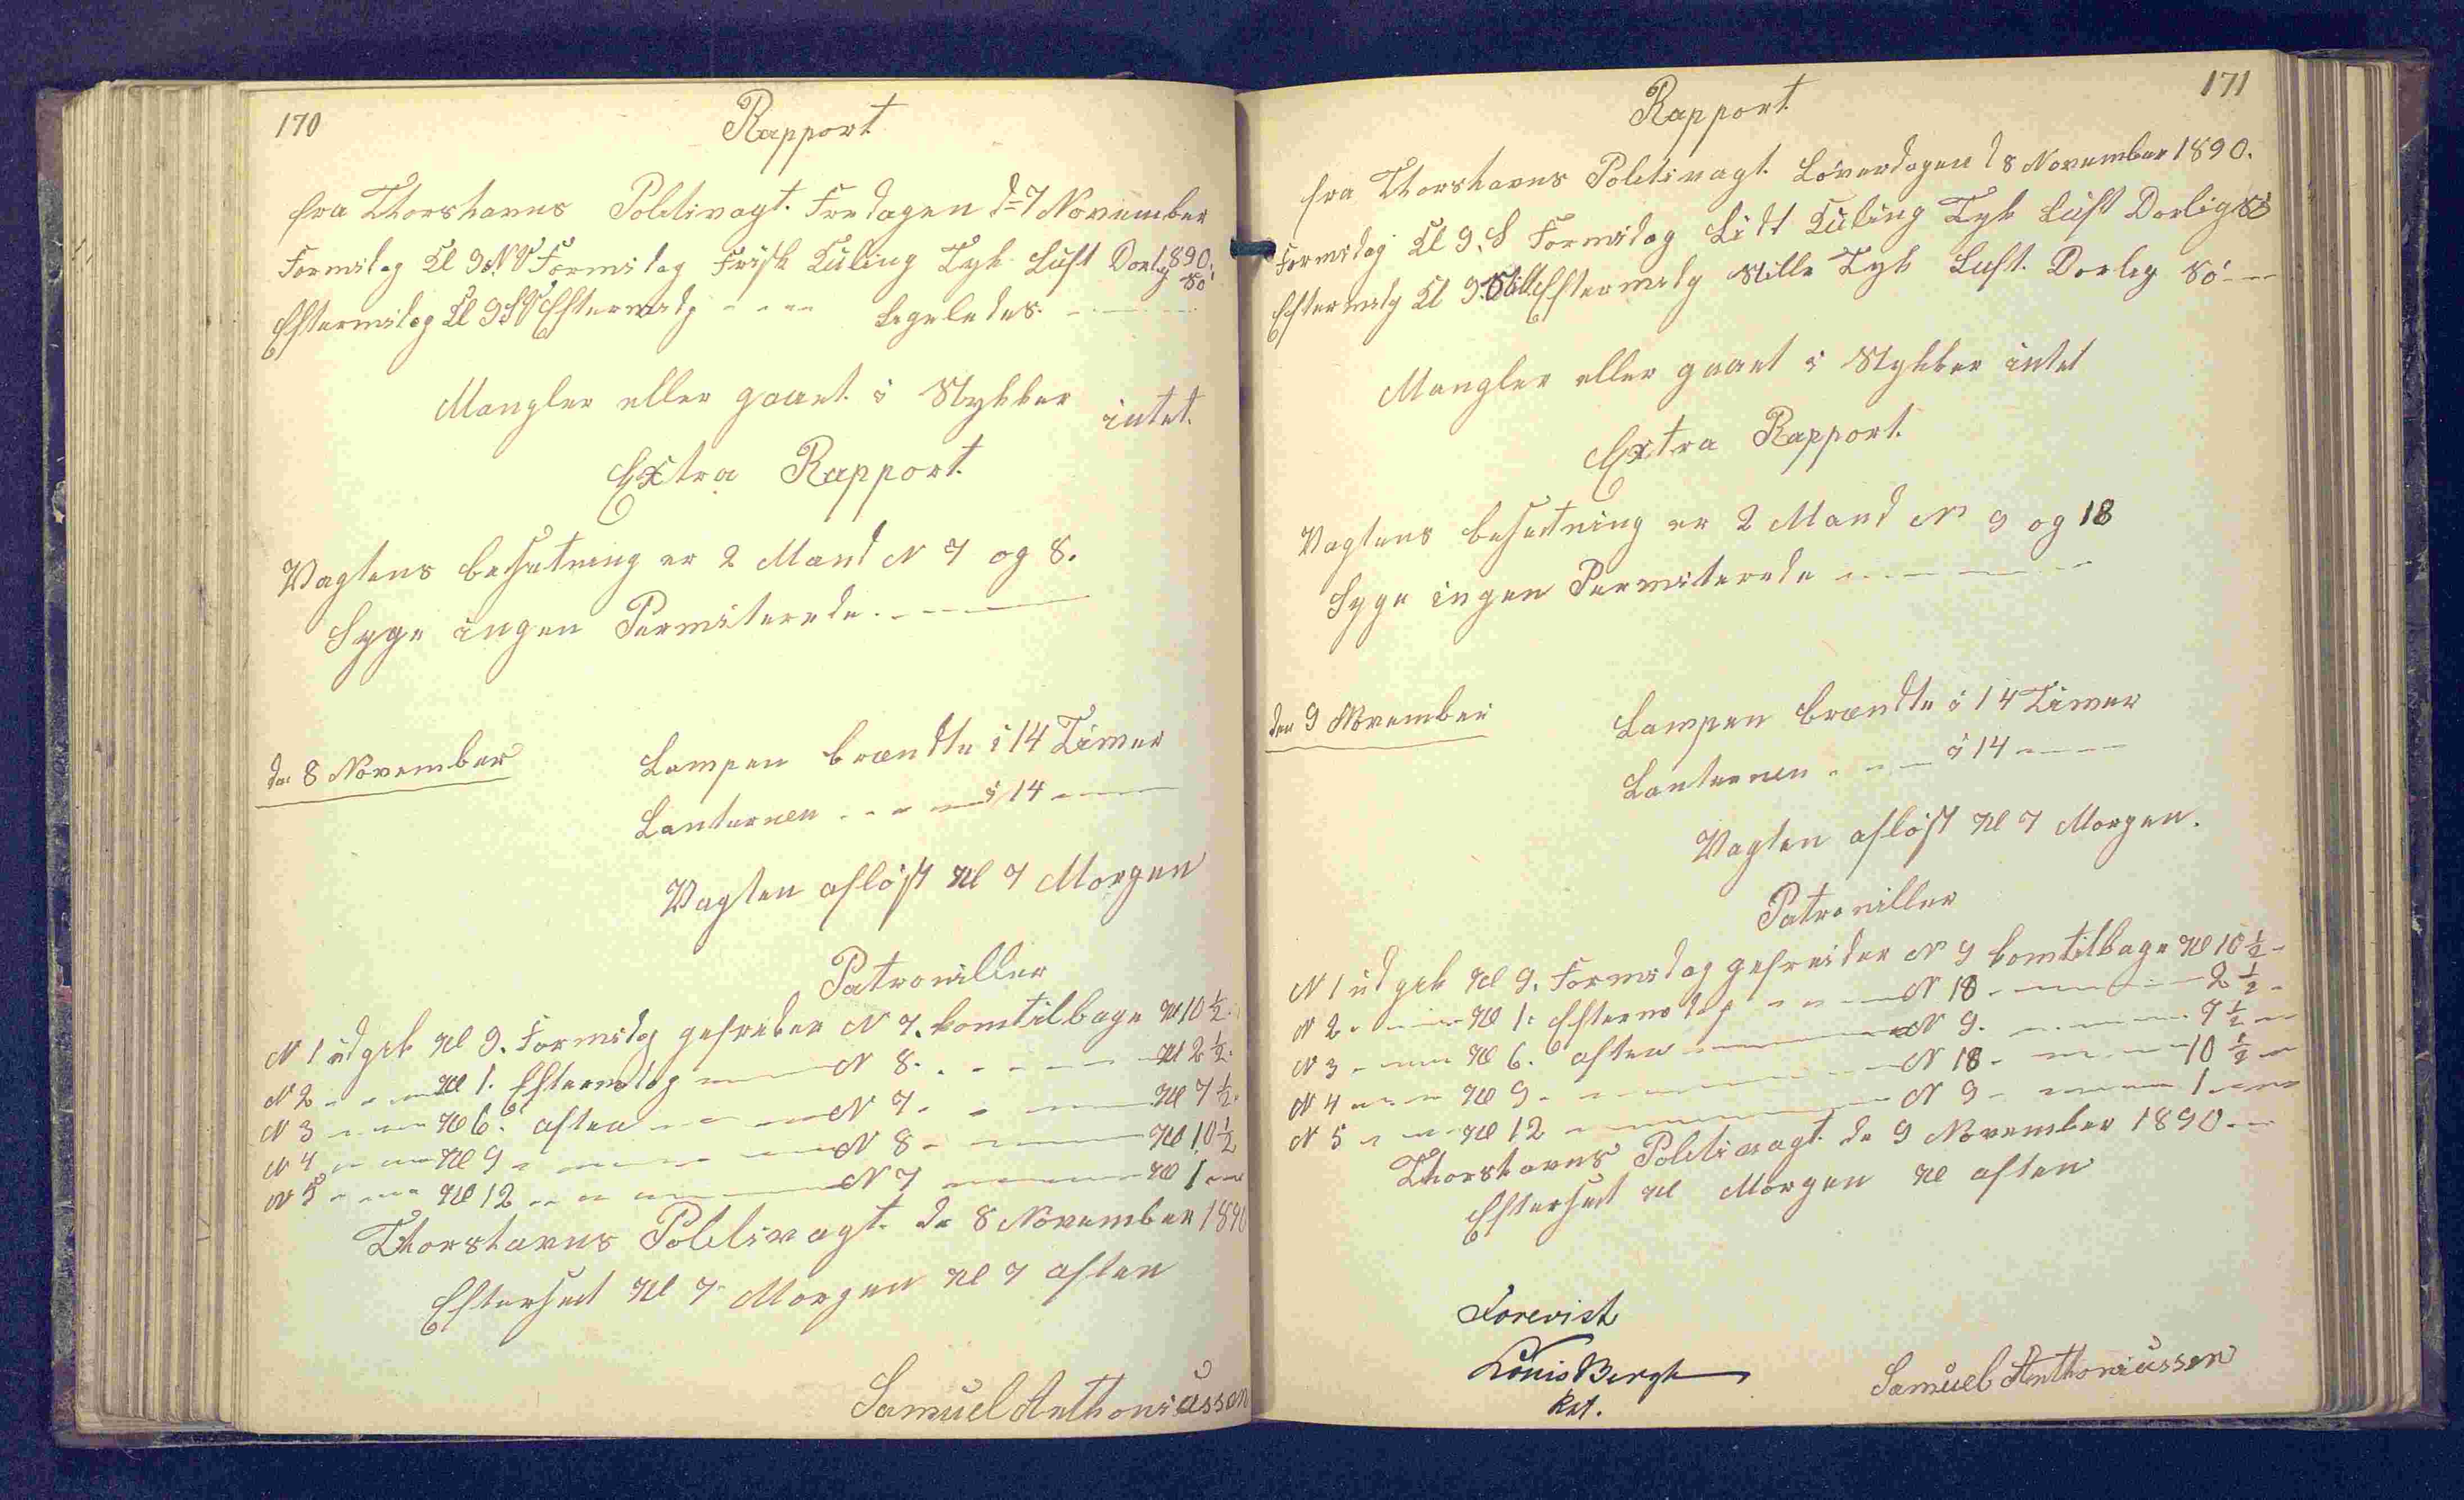 170
Rapport
fra Thorshavns Politivagt. Fredagen d=7 November
1890.
Formidag Kl 9. NV Formidag Frisk Kuling Tyk Luft Dorlig Sö
Eftermidag Kl 9 SV Eftermidg - - - - Ligeledes. - - -
Mangler eller gaaet i Stykker intet.
Extra Rapport.
Vagtens besætning er 2 Mand N 7 og 8.
Syge ingen Permiterede. - - -
den 8 November
Lampen brændte i 14 Timer
Lanternen - - - - i 14 - - -
Vagten aflöst Kl 7 Morgen
Patroniller
N 1 udgik Kl 9. Formidg gefreider N 7. komtilbage Kl 10 ½.
N 2 - - - Kl 1. Eftermidag - - N 8. - - - - - Kl 2 ½.
N 3 - - - Kl 6. aften - - - N 7. - - - Kl 7 ½.
N 4 - - - Kl 9 - - - - N 8 - - - Kl 10 ½
N 5 - - - Kl 12 - - - - N 7 - - - Kl 1 - -
Thorshavns Politivagt. de 8 November 1890
Efterset Kl 7 Morgen Kl 7 aften
Samuel Anthoniussen
171
Rapport
fra Thorshavns Politivagt. Löverdagen d 8 November 1890.
Formidag Kl 9. S Formidag Lidt Kuling Tyk Luft Dorlig Sö
Eftermidg Kl 9. Still Eftermidg Stille Tyk Luft. Dorlig Sö - -
Mangler eller gaaet i Stykker intet
Extra Rapport.
Vagtens besætning er 2 Mand N 9 og 18
Syge ingen Permiterede - - - -
den 9 November
Lampen brændte i 14 Timer
Lanternen - - - i 14 - - -
Vagten aflöst Kl 7 Morgen.
Patroniller
N 1 udgik Kl 9. Formidag gefreider N 9 komtilbage Kl 10 ½ -
N 2 - - - Kl 1. Eftermidag - - - N 18 - - - - 2 ½ -
N 3 - - - Kl 6. aften - - - N 9. - - - 7 ½ -
N 4 - - - Kl 9 - - - - N 18 - - - 10 ½ -
N 5 - - - Kl 12 - - - - N 9 - - - 1 - -
Thorshavns Politivagt. de 9 November 1890 - -
Efterset Kl Morgen Kl aften
Forevist
Louis Bergh
Samuel Anthoniussen